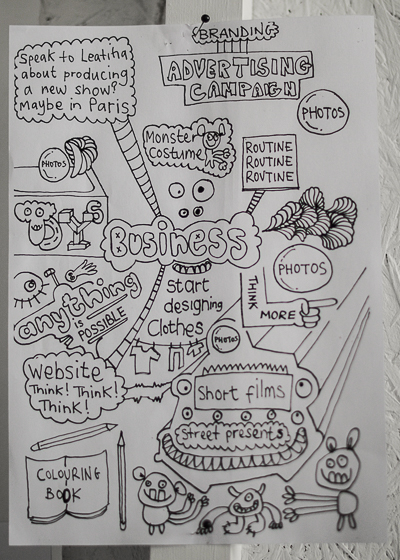 BRANDING
Speak to Leatiha
about producing
a new show?
maybe in Paris
ADVERTISING
CAMPAIGN
PHOTOS
Monster
Costume
ROUTINE
ROUTINE
ROUTINE
PHOTOS
BUSINESS
PHOTOS
anything
is
POSSIBLE
Start
designing
Clothes
THINK
MORE
PHOTOS
Website
Think! Think!
Think!
Short films
Street presents
COLOURING
BOOK